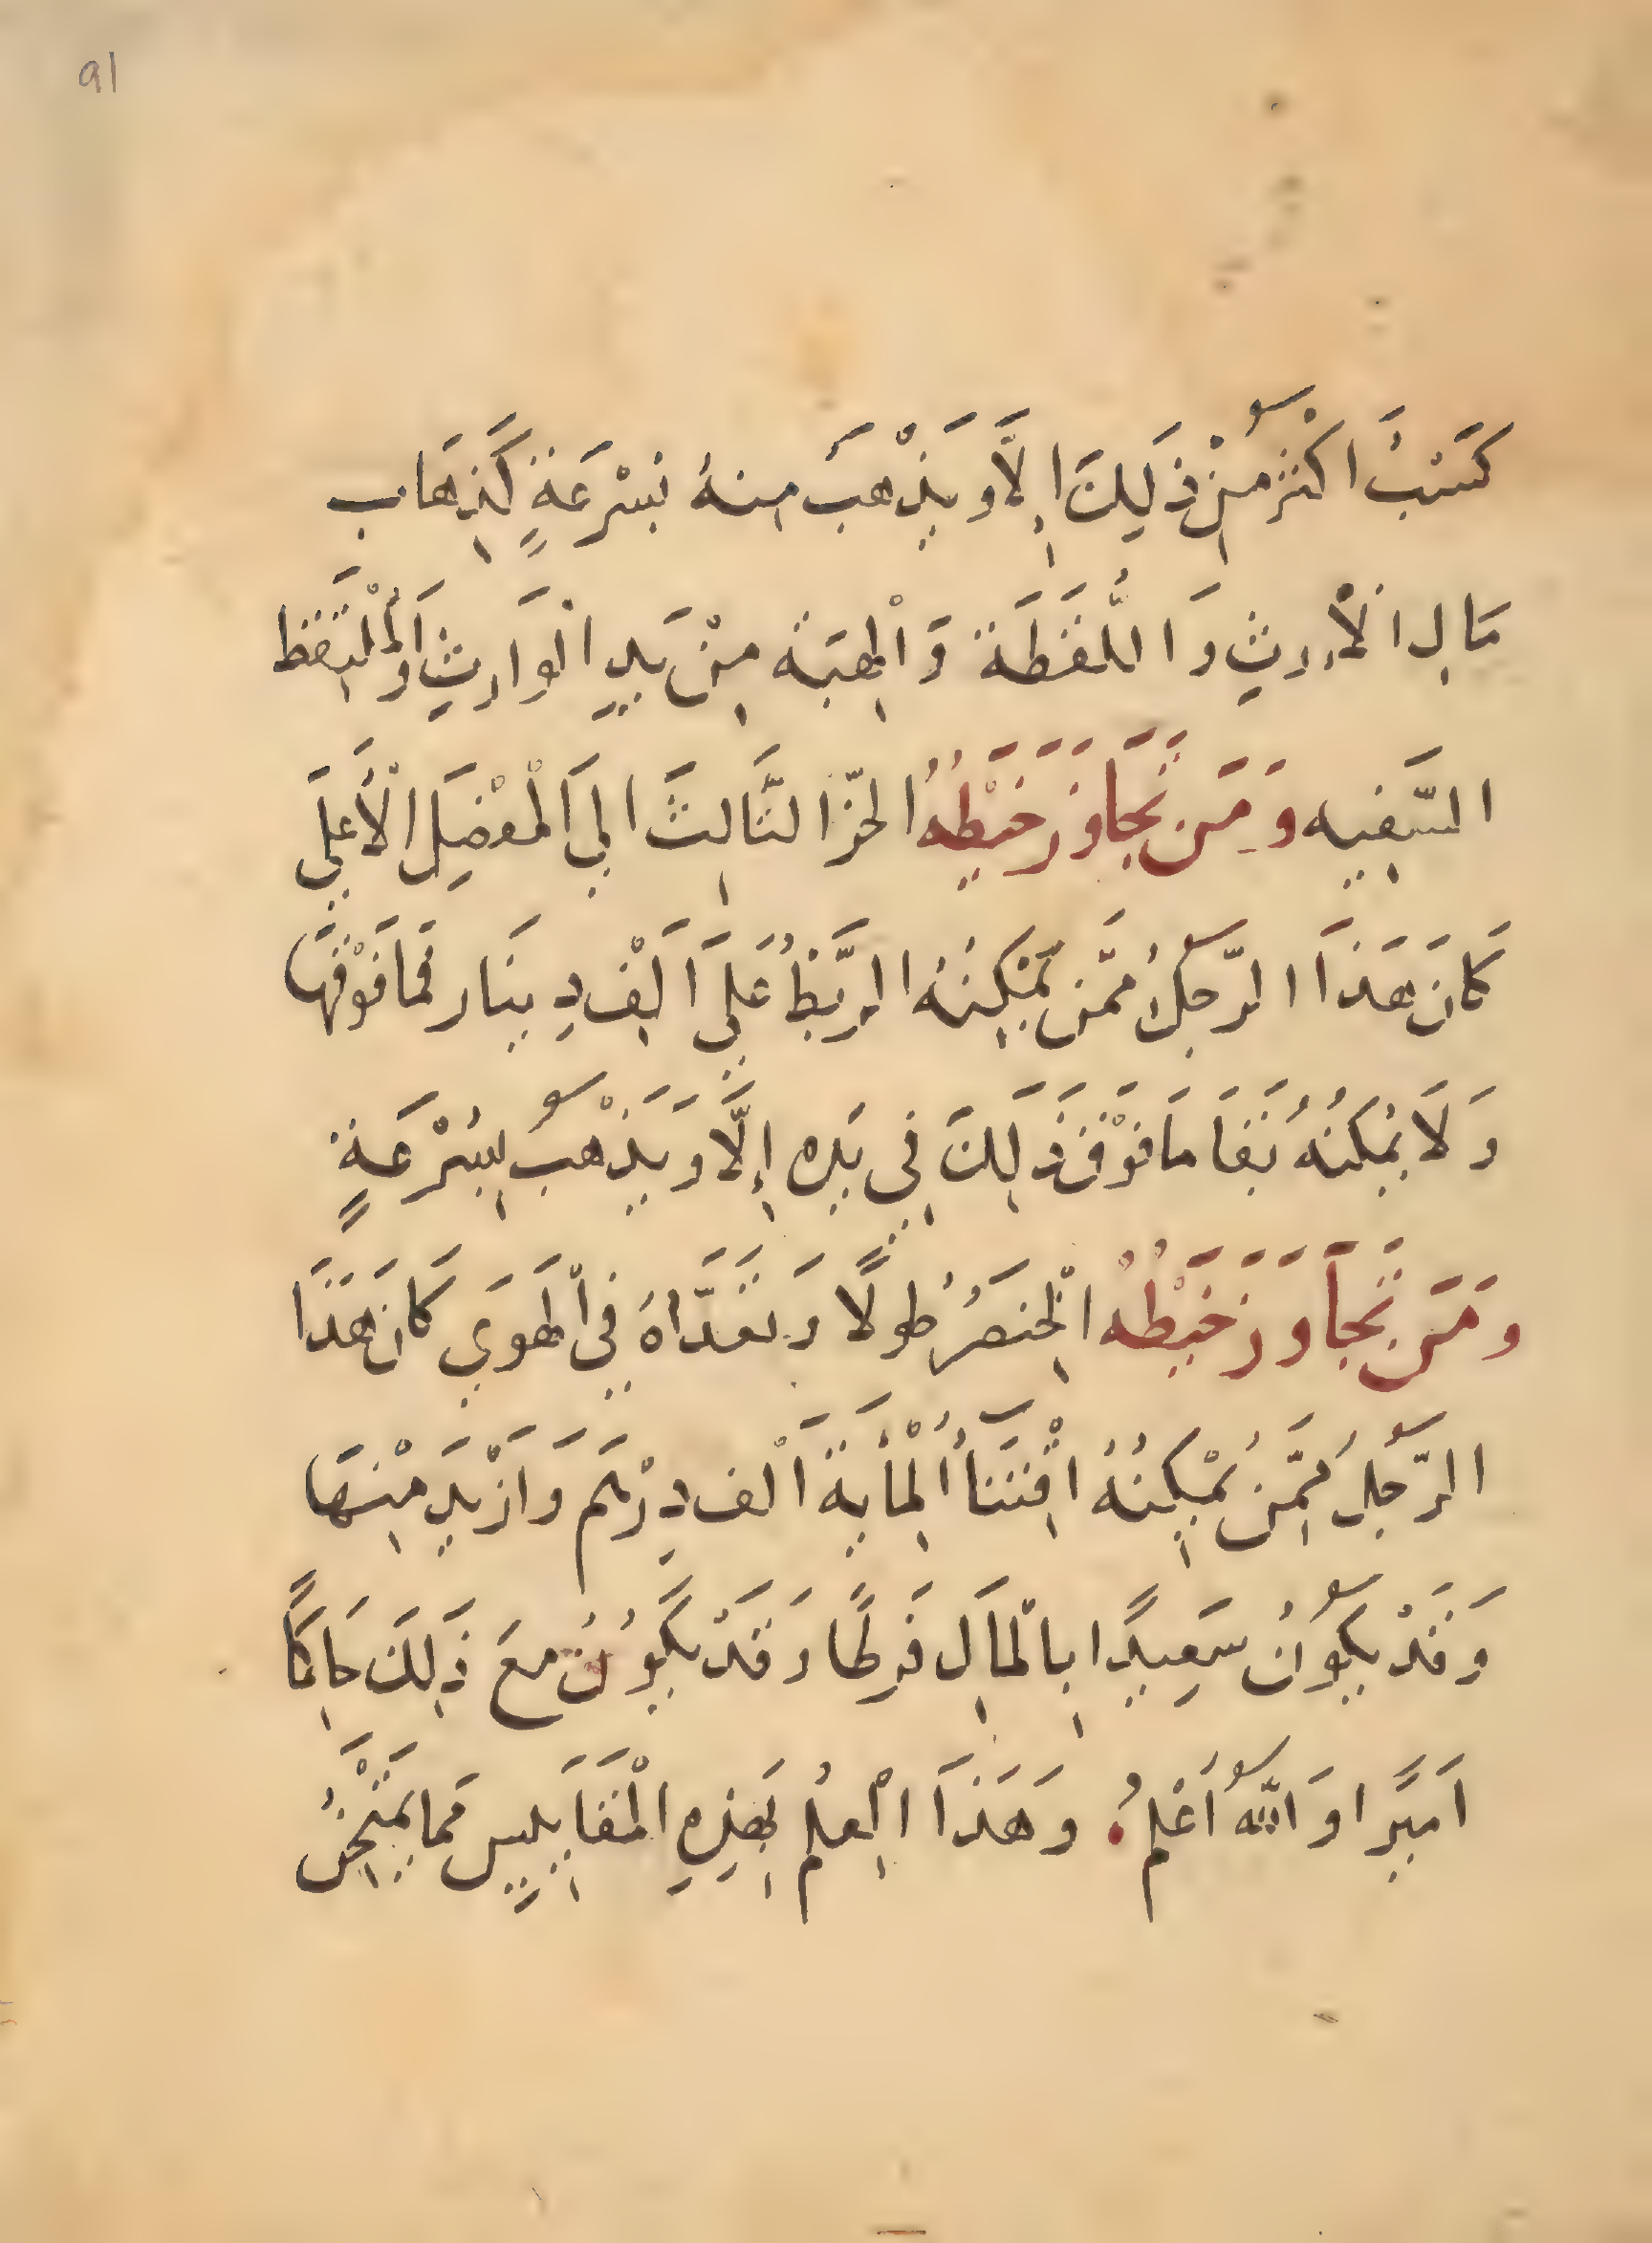 ٩١
كَسَبَ اكْثَرُ مِنْ ذَلِكَ اِلاَّ وَيَذْهَبَ مِنهُ بِسُرْعَةٍ كَذِهَاب
مَالِ الْأِرثِ وَاللُّقَطَة وَالْهِبَة مِنْ يَدِ الْوَارِثِ وَالْمُلْتَقِط
السَّفِيه وَمَن تَجَاوَزَ خَيْطُهُ الحَزّ الثَّالِثَ الِيَ الْمَفْصِلَ الْأَعلَي
كَان هَذَا الرَّجِلُ مُمَّن يَمْكِنُهُ الرَّبْطُ عَلَي اَلْفِ دِينَار فَمَا فَوْقَهَا
وَلَا يُمْكِنُهُ بَقَا مَا فَوْقَ ذَلِكَ فِي يَدِه اِلَّا وَيَذْهَبُ بِسُرْعَةٍ
وَمَن تَجَاوَزَ خَيْطُهُ الْخِنصَرُ طُولًا وَتَعَدَّاهُ فِي الْهَوَي كَان هَذَا
الرَّجُلُ مُِمَّن يُمْكِنُهُ اقْتِنَآأُ الْمِأيَةَ اَلْف دِرْهَم وَازْيَدَ مِنْهَا
وَقَدْ يَكُونُ سَعِيدًا بِالْمَالِ فَرطًا وَقَدْ يَكُونُ مَعَ ذَلِكَ حَاكِمًا
اَمِيرًا وَاللّٰهُ اَعْلمُ. وَهَذَا الْعِلمُ بِهَذِهِ الْمَقَايِيسِ مَمَا يَمْتَحِنُ